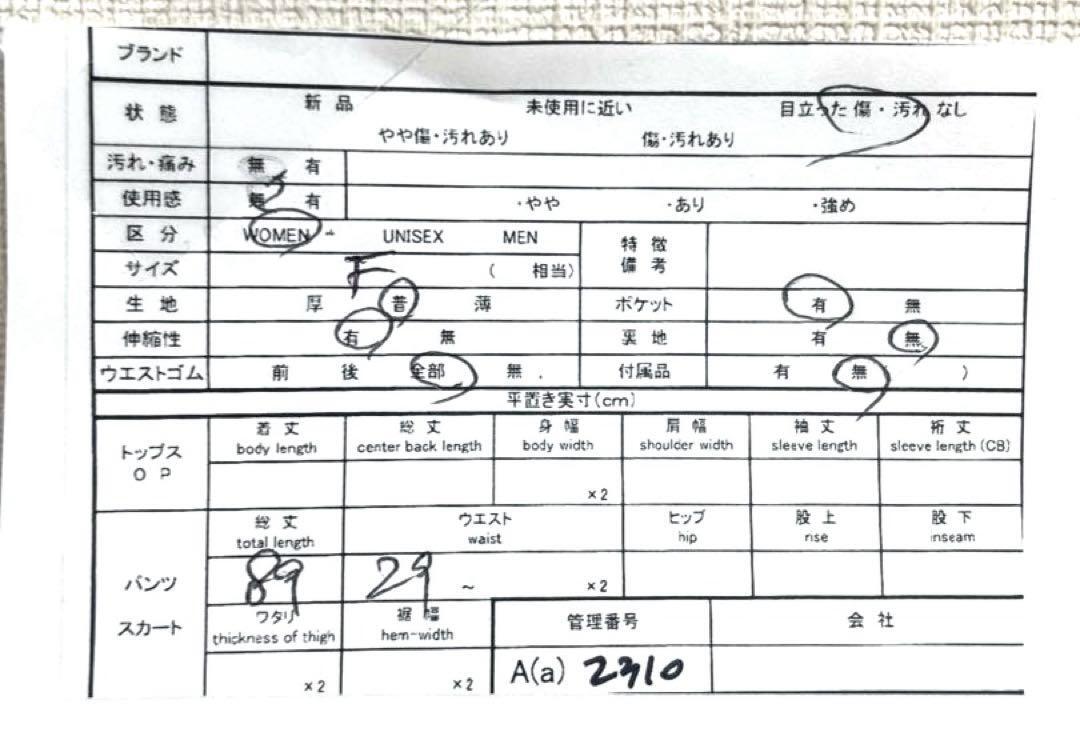 ブランド
状態 新品 未使用に近い 目立った傷・汚れなし
やや傷・汚れあり 傷・汚れあり
汚れ・痛み 無 有
使用感 無 有 ・やや ・あり ・強め
区分 WOMEN UNISEX MEN 特徴備考
サイズ F ( 相当)
生地 厚 普 薄 ポケット 有 無
伸縮性 有 無 裏地 有 無
ウエストゴム 前 後 全部 無 付属品 有 無 )
平置き実寸(cm)
トップス OP 着丈 総丈 身幅 肩幅 袖丈 裄丈
body length center back length body width shoulder width sleeve length sleeve length (CB)
×2
総丈 ウエスト ヒップ 股上 股下
total length waist hip rise inseam
パンツ 89 29 ~ ×2
スカート ワタリ 裾幅 管理番号 会社
thickness of thigh hem-width
×2 ×2 A(a) 2310